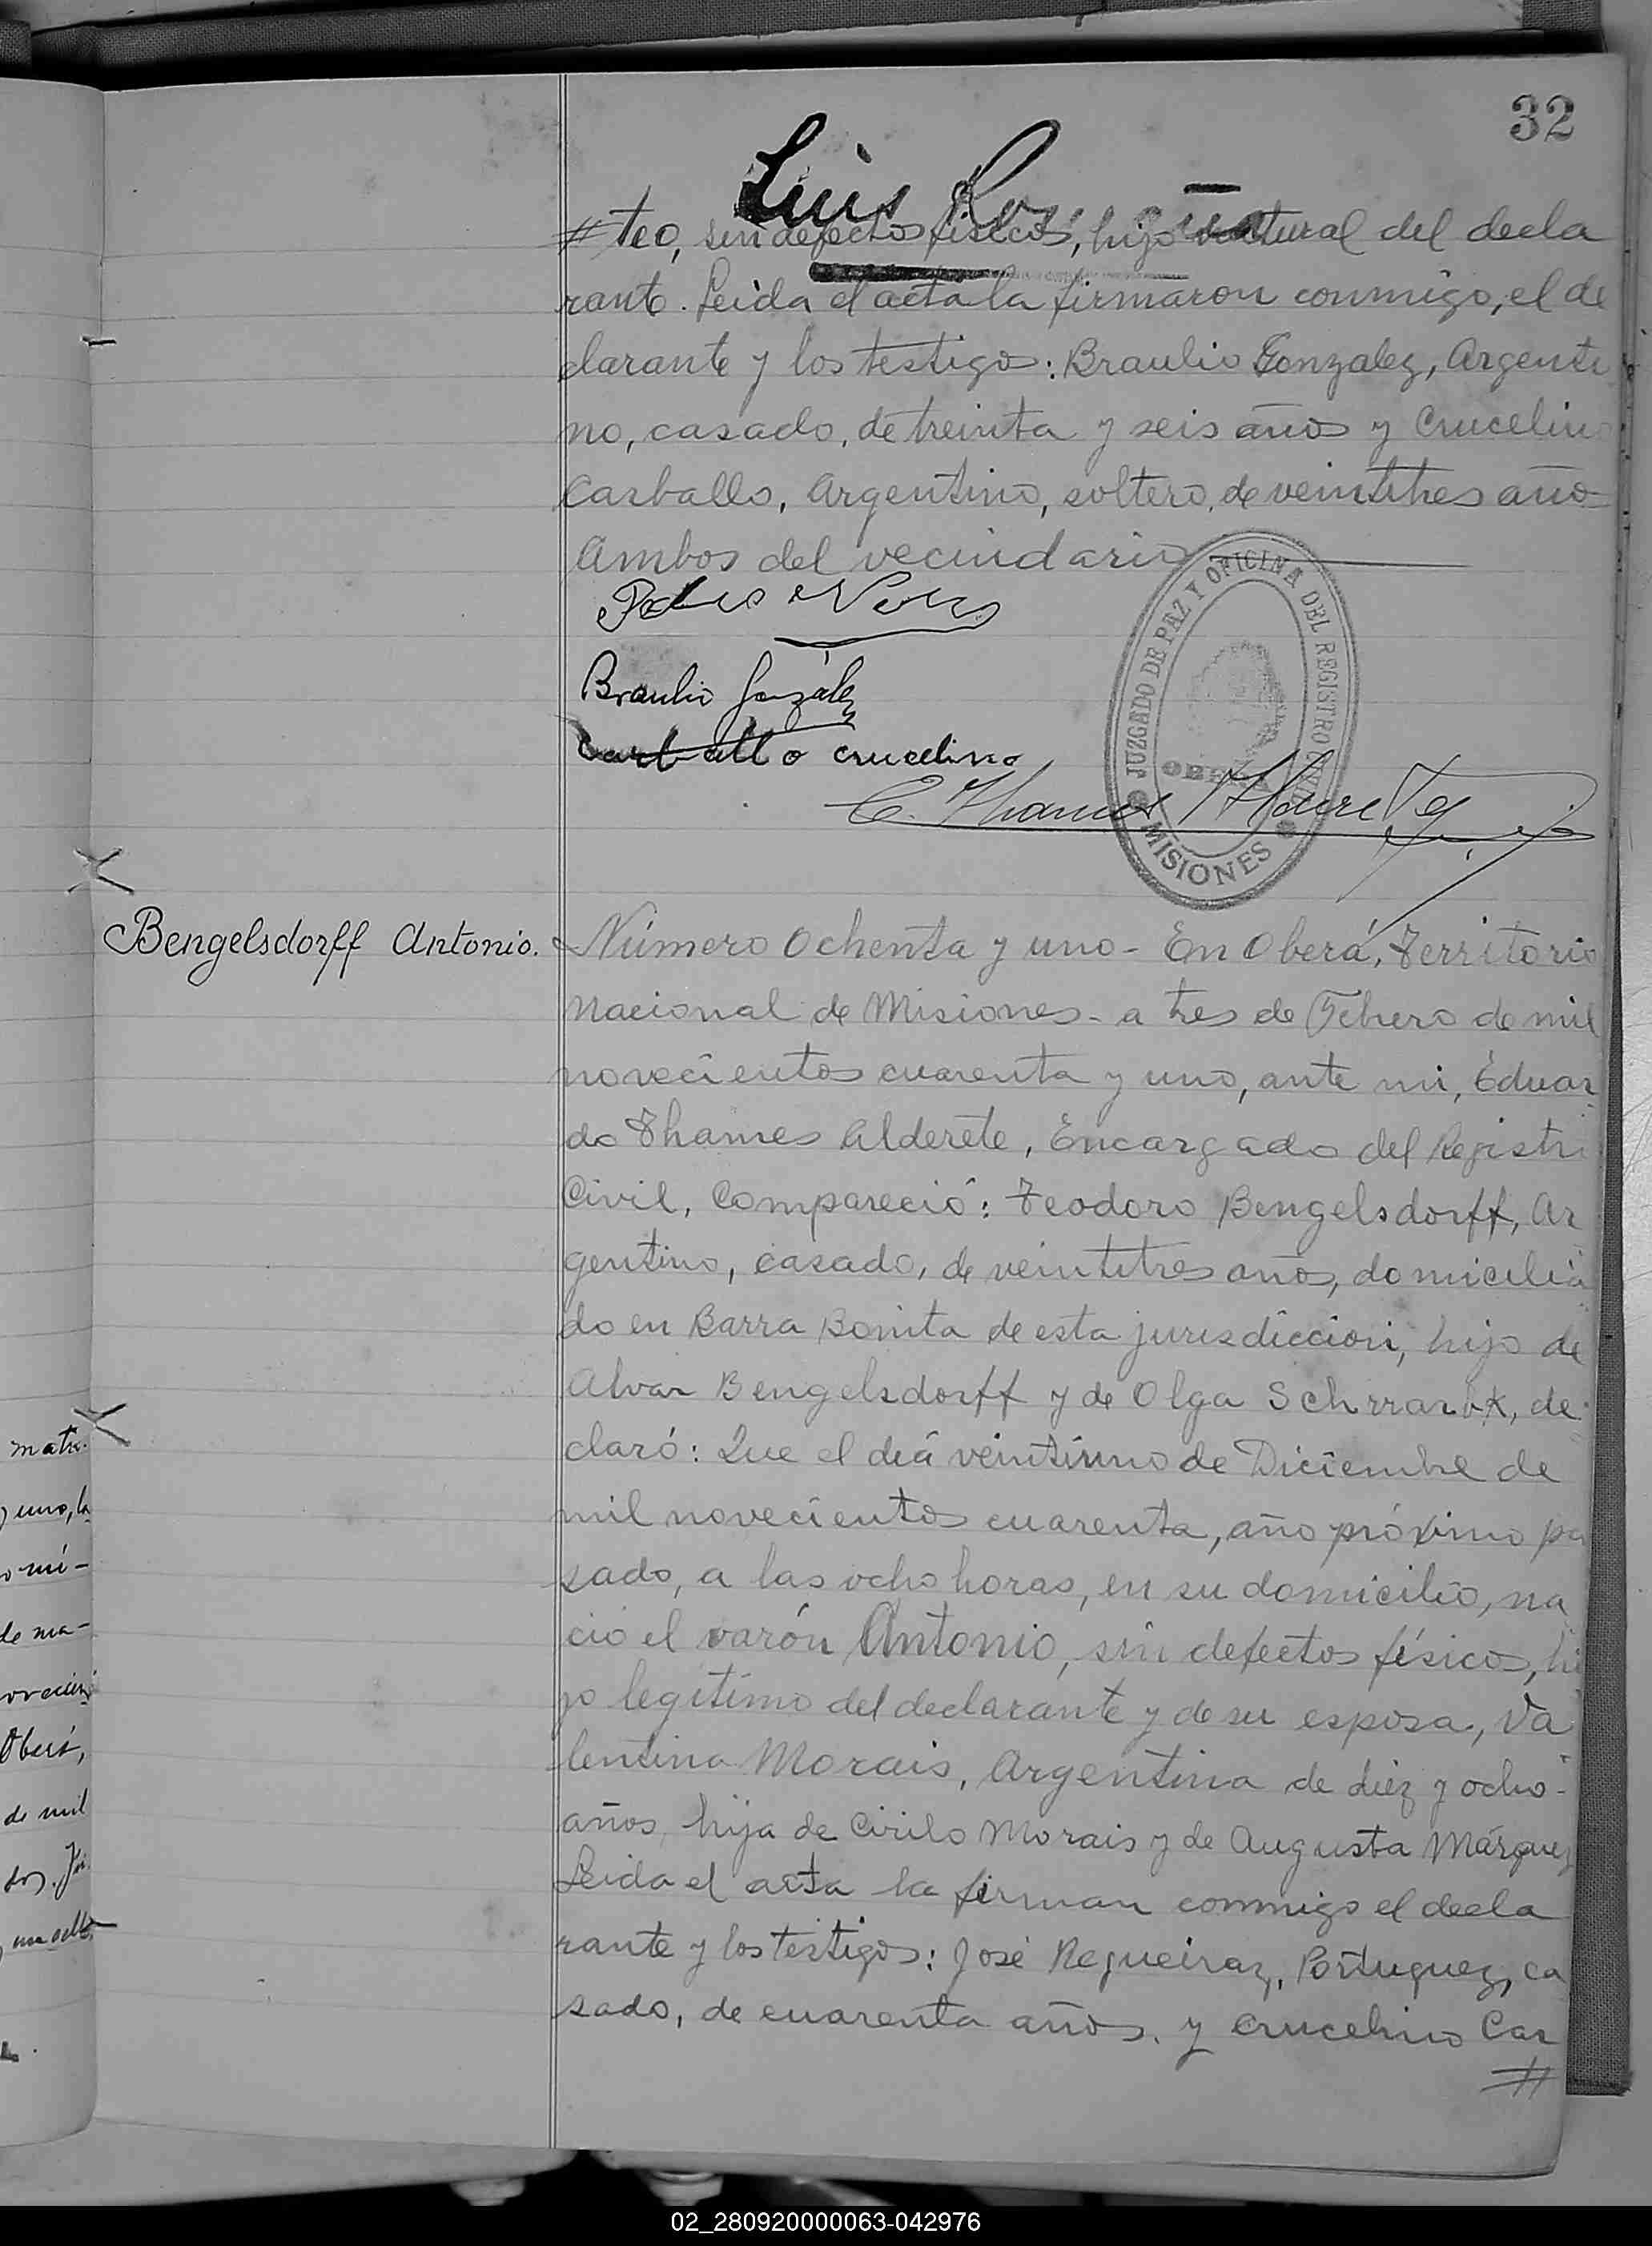 32
Luis
# teo, sin defectos fisicos, hijo natural del decla
rante. Leida el acta la firmaron conmigo, el de
clarante y los testigo: Braulio Gonzalez, Argenti
no, casado, de treinta y seis años y Crucelino
Carballo, Argentino, soltero, de veintitres año
Ambos del vecindario
Braulio González
Carballo crucelino
JUZGADO DE PAZ Y OFICINA DEL REGISTRO CIVIL
OBERA
MISIONES
Bengelsdorff Antonio.
Número Ochenta y uno - En Oberá, Territorio
Nacional de Misiones - a tres de Febrero de mil
novecientos cuarenta y uno, ante mi, Eduar
do Thames Alderete, Encargado del Registro
Civil, Compareció: Teodoro Bengelsdorff, Ar
gentino, casado, de veintitres años, domicilia
do en Barra Bonita de esta jurisdiccion, hijo de
Alvar Bengelsdorff y de Olga, de
claró: Que el dia veintiuno de Diciembre de
mil novecientos cuarenta, año próximo pa
sado, a las ocho horas, en su domicilio, na
ció el varón Antonio, sin defectos físicos, hi
jo legitimo del declarante y de su esposa, Va
lentina Morais, Argentina de diez y ocho -
años, hija de Cirilo Morais y de Augusta Márquez
Leida el acta la firman conmigo el decla
rante y los testigos: José Regueiraz, Portuguez, ca
sado, de cuarenta años. y Crucelino Car
#
matri-
y uno, la
o mi-
de ma-
Oberá,
de mil
02_280920000063-042976